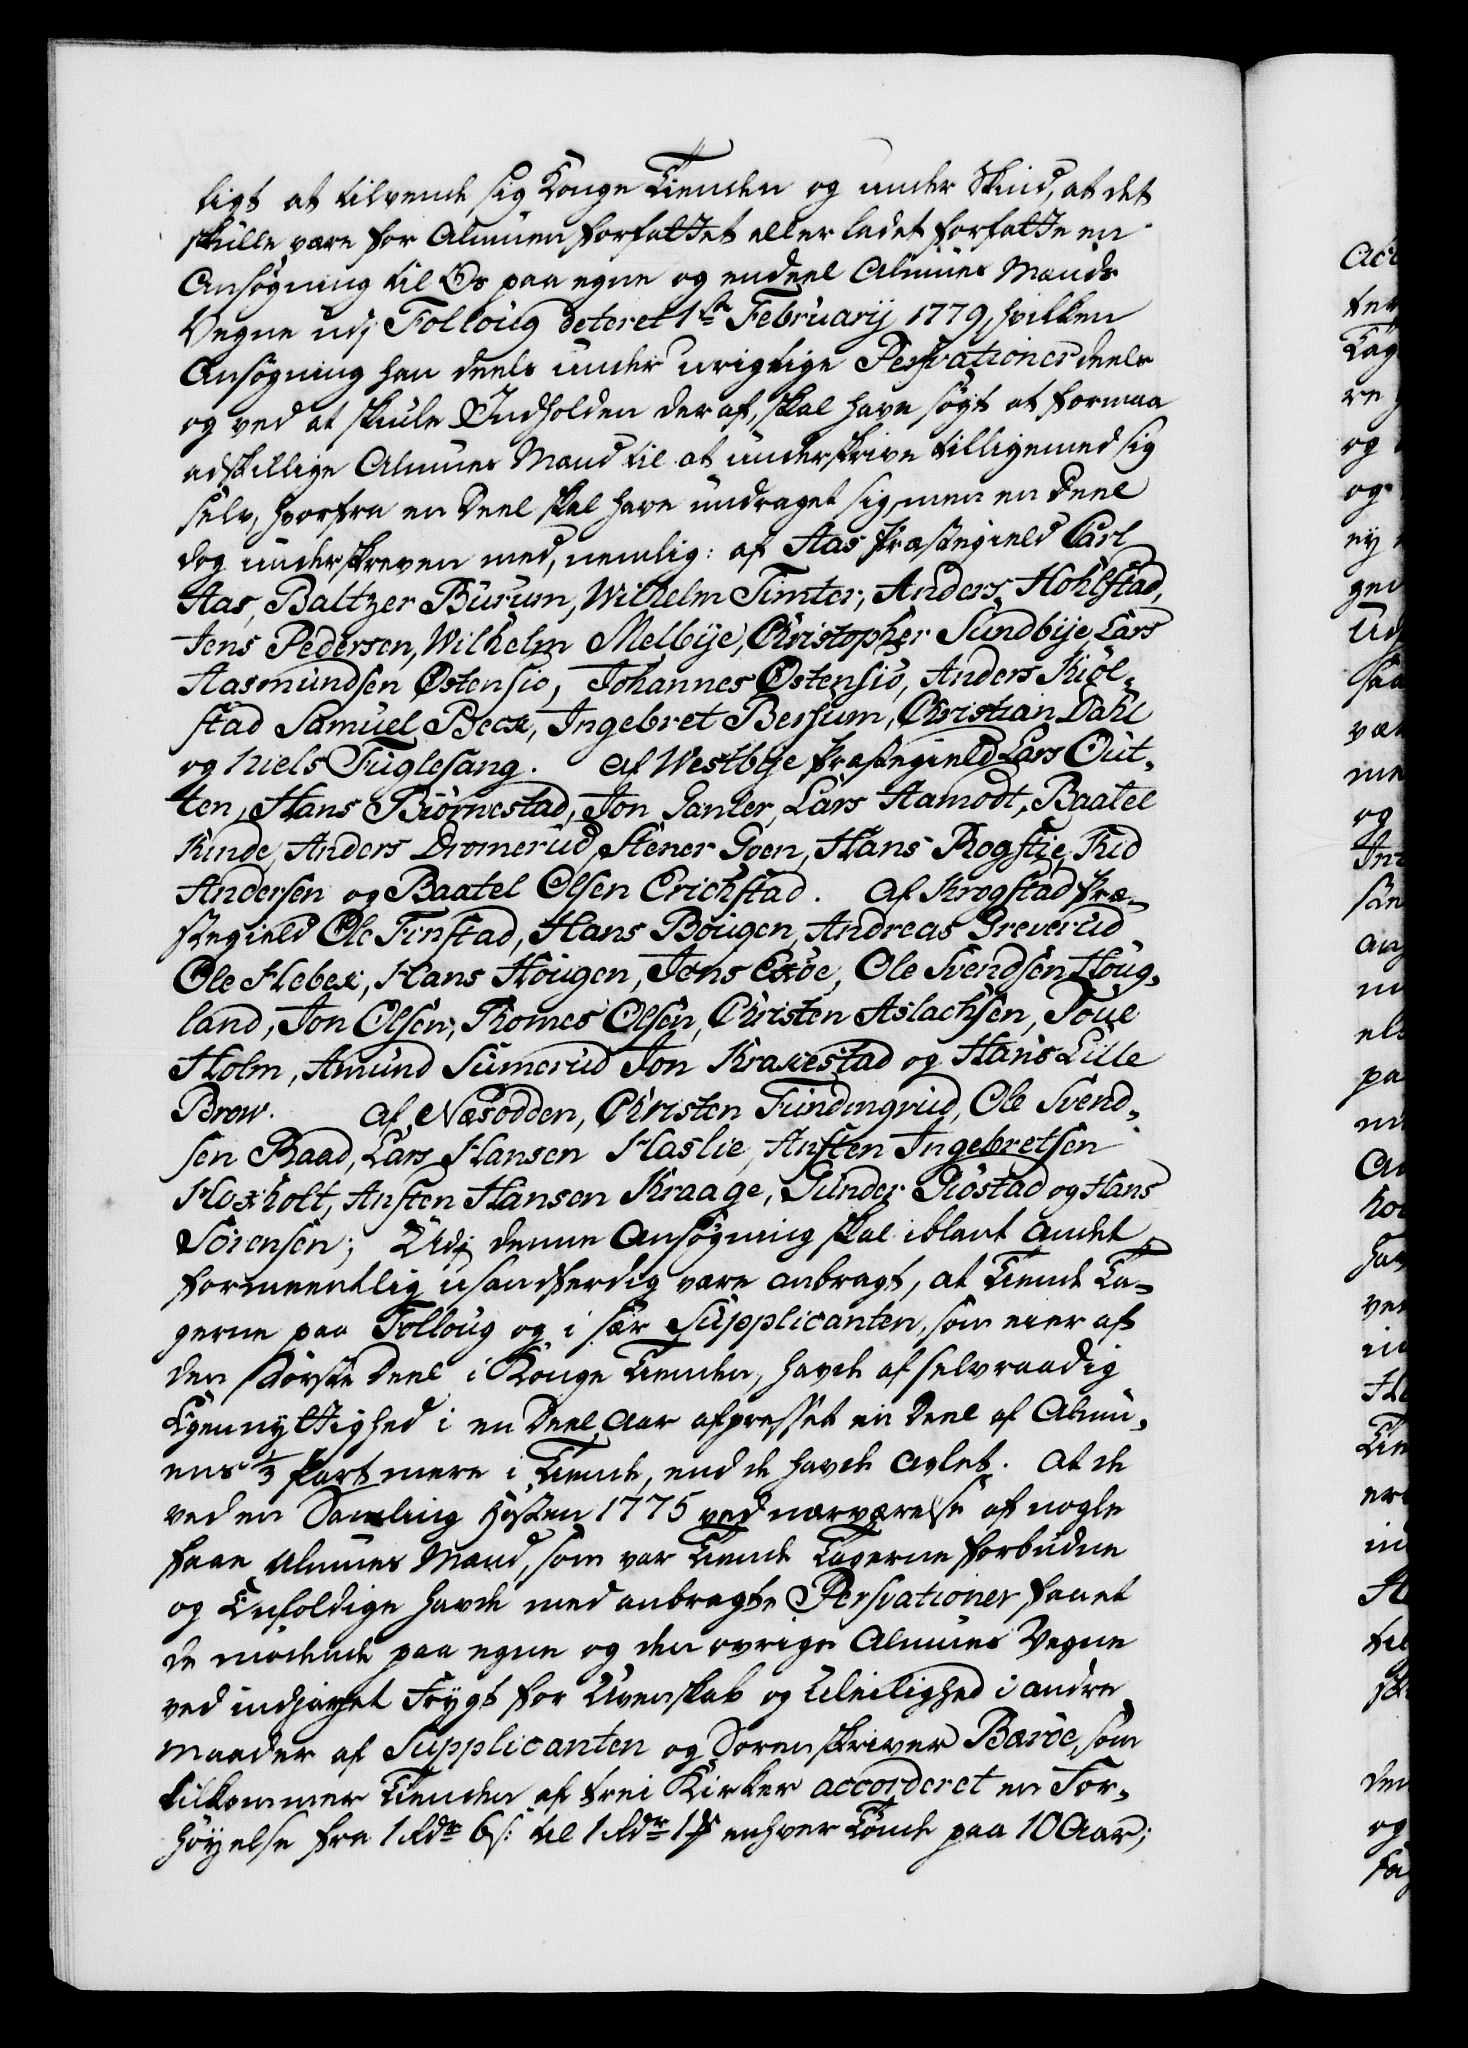 ligt at tilvende sig Konge Tienden og under Skind, at det
skulle være for Almuen forfattet eller ladet forfatte en
Ansøgning til Os paa egne og endeel Almues Mænds
Vegne udj Folloug dateret 1ste Februarij 1779, hvilken
Ansøgning han deels under urigtige Persvationer deels
og ved at skiule Indholden deraf, skal have søgt at formaa
adskillige Almues Mænd til at underskrive tilligemed sig
selv, hvorfra en Deel skal have undraget sig, men en Deel
dog underskreven med, nemlig: af Aas Præstegield Carl
Aas, Baltzer Burum, Wilhelm Timter, Anders Hohlstad,
Jens Pedersen, Wilhelm Melbÿe, Christopher Sundbÿe Lars
Aasmundsen Østensiö, Johannes Østensiö, Anders Kiöl-
stad Samuel Beck, Ingebret Bersum, Christian Dahl
og Niels Fuglesang. Af Westbÿe Præstegield Lars Out-
ten, Hans Biörnestad, Jon Ganler, Lars Aamodt, Baatel
Kinde, Anders Dromerud, Stener Goen, Hans Rogstie, Kid
Andersen og Baatel Olsen Erichstad. Af Krogstad Præ-
stegield Ole Finstad, Hans Bougen, Andreas Greverud
Ole Hebek, Hans Hougen, Jens Exöe, Ole Svendsen Houg-
land, Jon Olsen, Thomes Olsen, Christen Aslachsen, Poul
Holm, Amund Sümerud Jon Krakestad og Hans Lille
Brow. Af Næsodden, Christen Fundingrud, Ole Svend-
sen Raad, Lars Hansen Haslie, Ansten Ingebretsen
Hoxholt, Ansten Hansen Kraage, Gunder Giöstad og Hans
Sörensen; Udj denne Ansøgning skal iblant andet
formeentlig usandfærdig være anbragt, at Tiende Ta-
gerne paa Folloug og i sær Supplicanten, som eier af
den Störste Deel i Konge Tienden, havde af selvraadig
Egennyttighed i en Deel Aar afpresset en Deel af Almu-
ens 1/3 Part mere i Tiende, end de havde avlet. At de
ved en Samling Høsten 1775 ved nærværelse af nogle
faae Almues Mænd, som var Tiende Tagerne forbudne
og Enfoldige havde med anbragte Persvationer faaet
de mödende paa egne og den øvrige Almues Vegne
ved indjaget Frygt for Uvenskab og Uleilighed i andre
Maader af Supplicanten og Sorenskriver Bæröe, som
tilkommer Tienden af trei Kirker accorderet en For-
höÿelse fra 1 Rdr 6 s: til 1 Rdr 1 enhver Tönde paa 10 Aar;